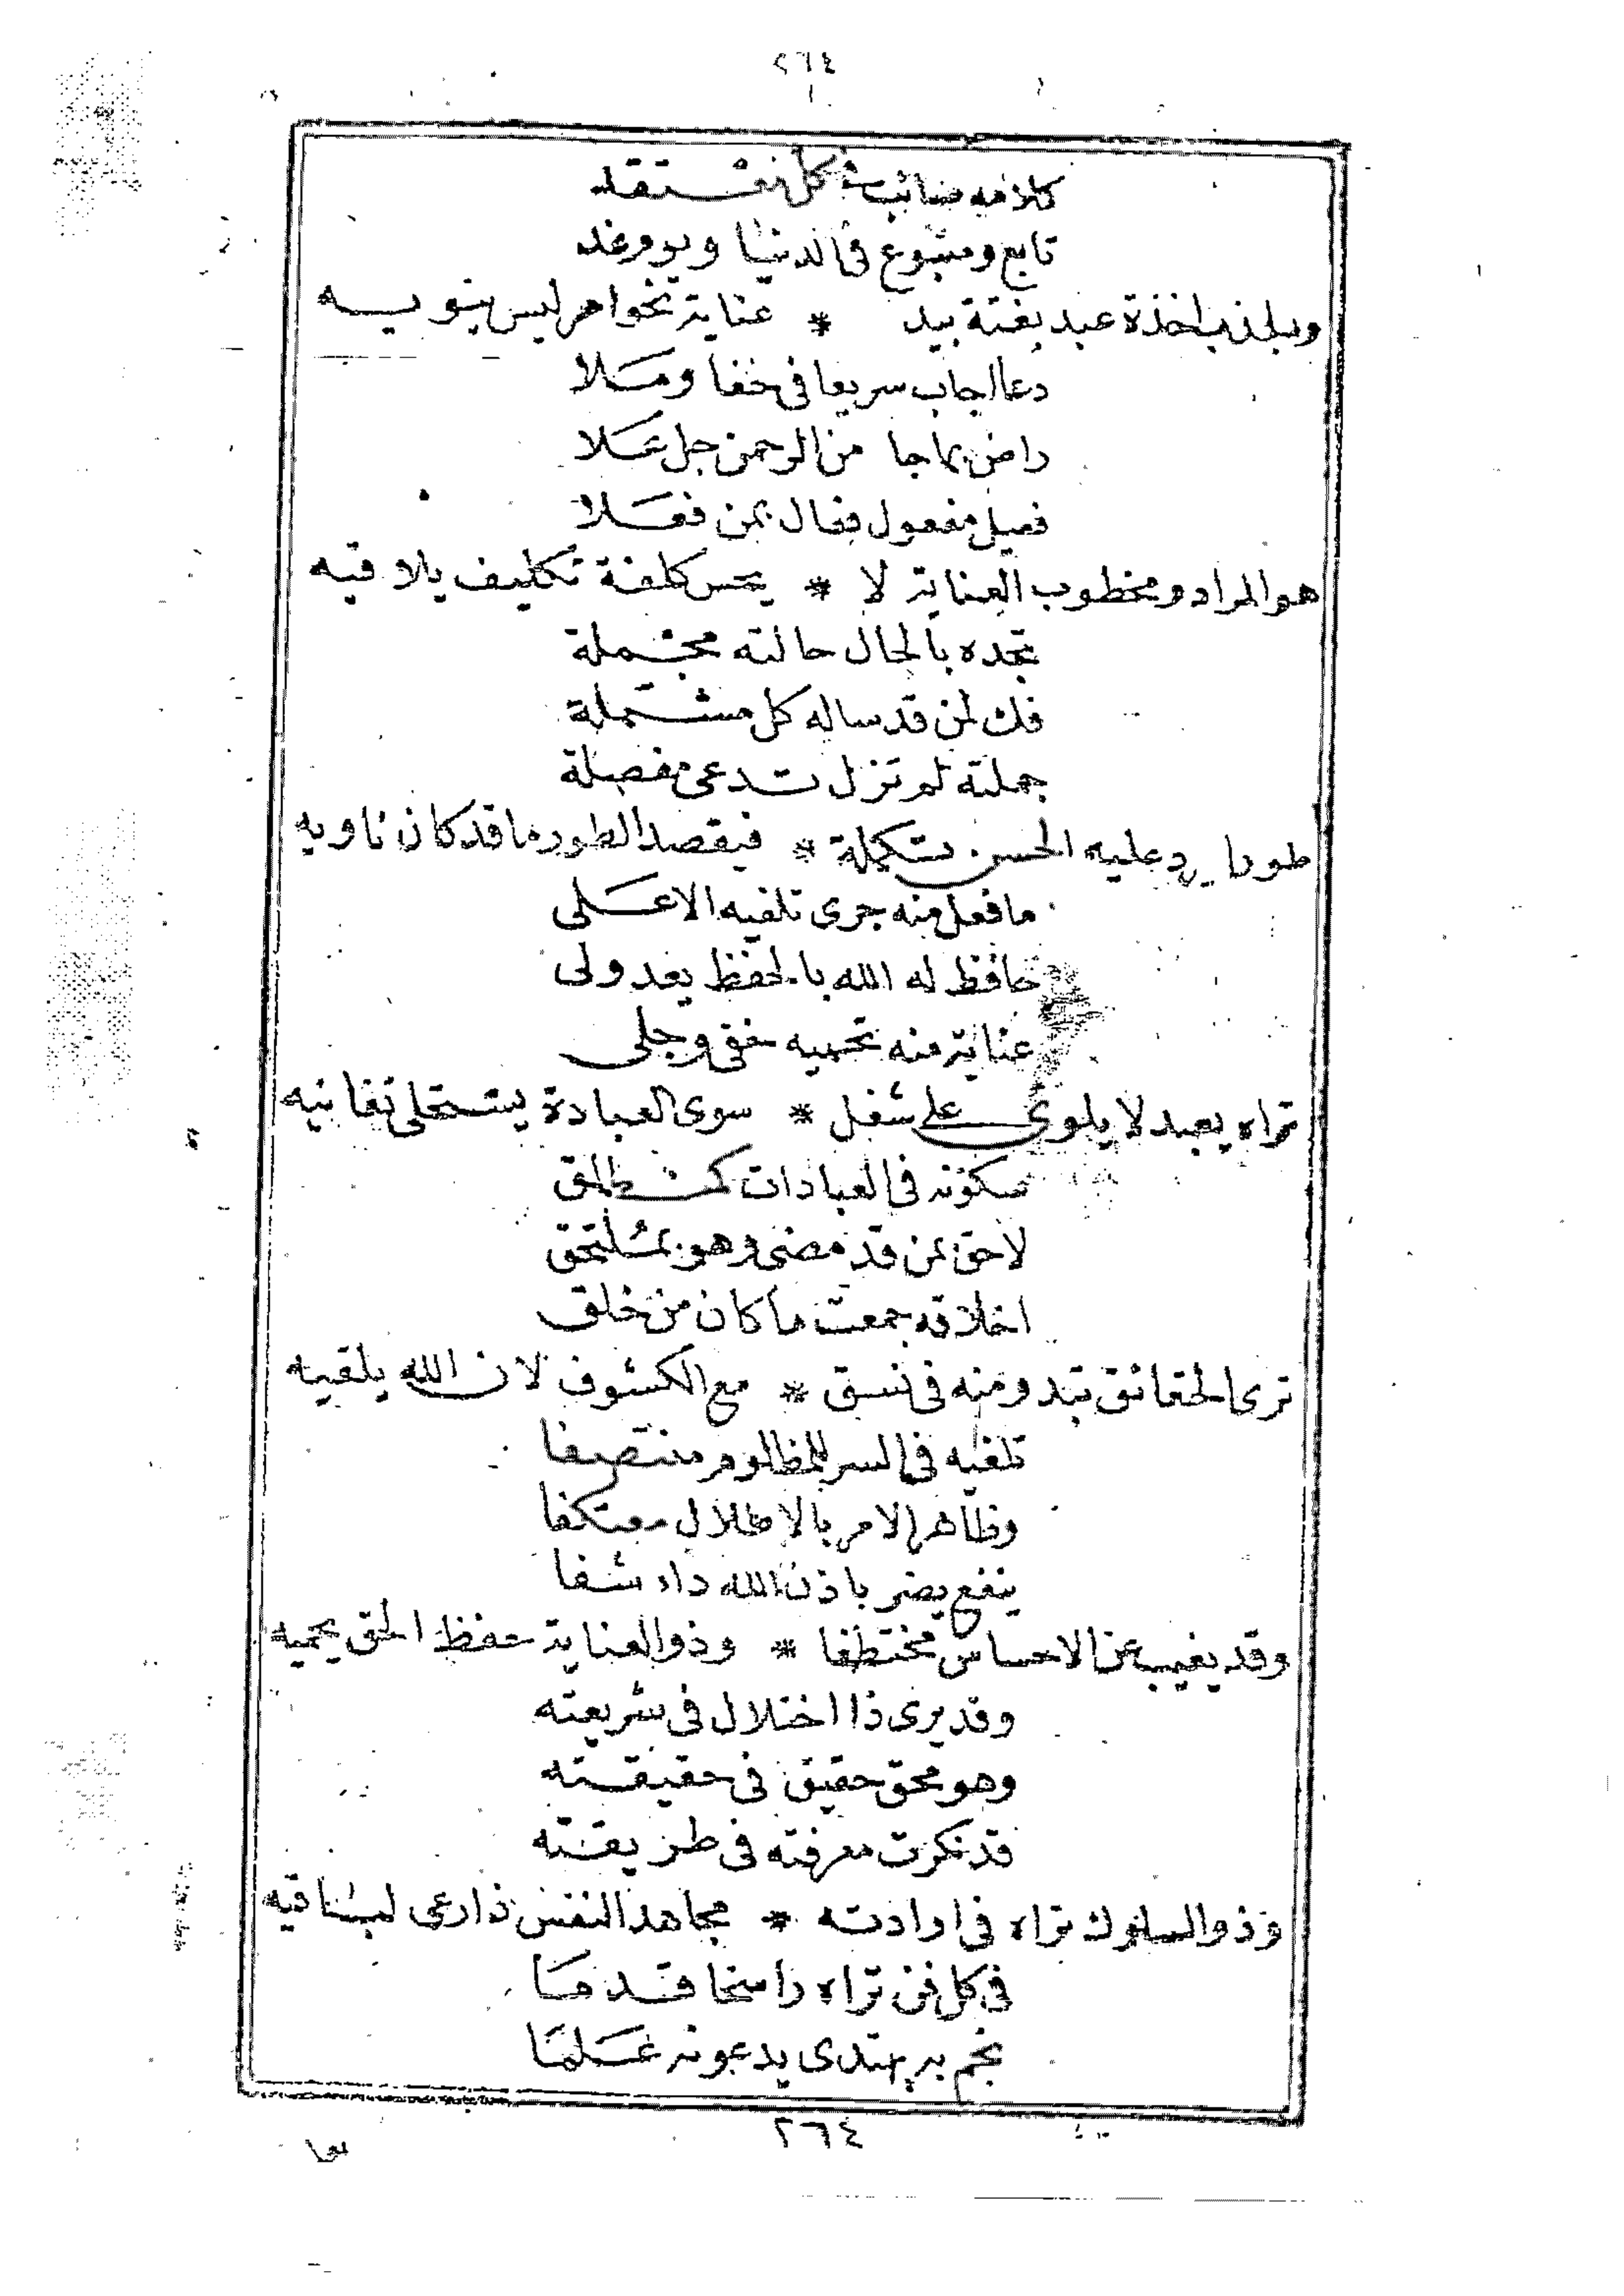 ٢٦٤
كلامه صائب في كل منتقد
تابع ومتبوع في الدنيا ويوم غد
وبلجذب اخذة عبد بغتة بيد * عناية نحوا مر ليس ينويه
دعا اجاب سريعا في خفا وملا
راض بما جا من الرحمن جل علا
فصيل مفعول فعال بمن فعلا
هو المراد ومخطوب العناية لا * يحس كلفة تكليف يلاقيه
تجده بالحال حالته محتملة
فك لمن قد ساله كل مشتملة
جملته لم تزل تدعى مفصلة
طورا يرد عليه الحسن تكملة * فيقصد الطور ما قد كان ناويه
ما فعل منه جرى تلفيه الاعلى
حافظ له الله بالحفظ يعد ولى
عناية منه تحميه خفى وجلى
تراه يعبد لا يلوى على شغل * سوى العبادة يستحلى تفانيه
سكونه في العبادات كمنطلق
لاحق بمن قد مضى وهو بملتحق
اخلاقه جمعت ما كان من خلق
ترى الحقائق تبدو منه في نسق * مع الكشوف لان الله يلقيه
تلفيه في السر للمظلوم منتصفا
وظاهر الامر بالاطلال معتكفا
ينفع يضر باذن الله داء شفا
وقد يغيب عن الاحساس مختطفا * وذو العناية حفظ الحق يحميه
وقد يرى ذا اختلال في شريعته
وهو محق حقيق في حقيقته
قد نكرت معرفته في طريقته
وذو السلوك تراه في ارادته * مجاهد النفس ذا رعى لباقيه
في كل فن تراه راسخا قدما
نجم به يهتدى يدعونه علما
٢٦٤